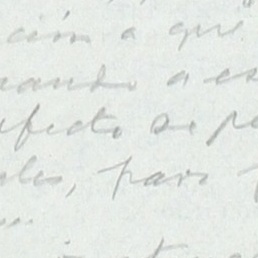 ción a que
ando a es
efecto se pe
les, para